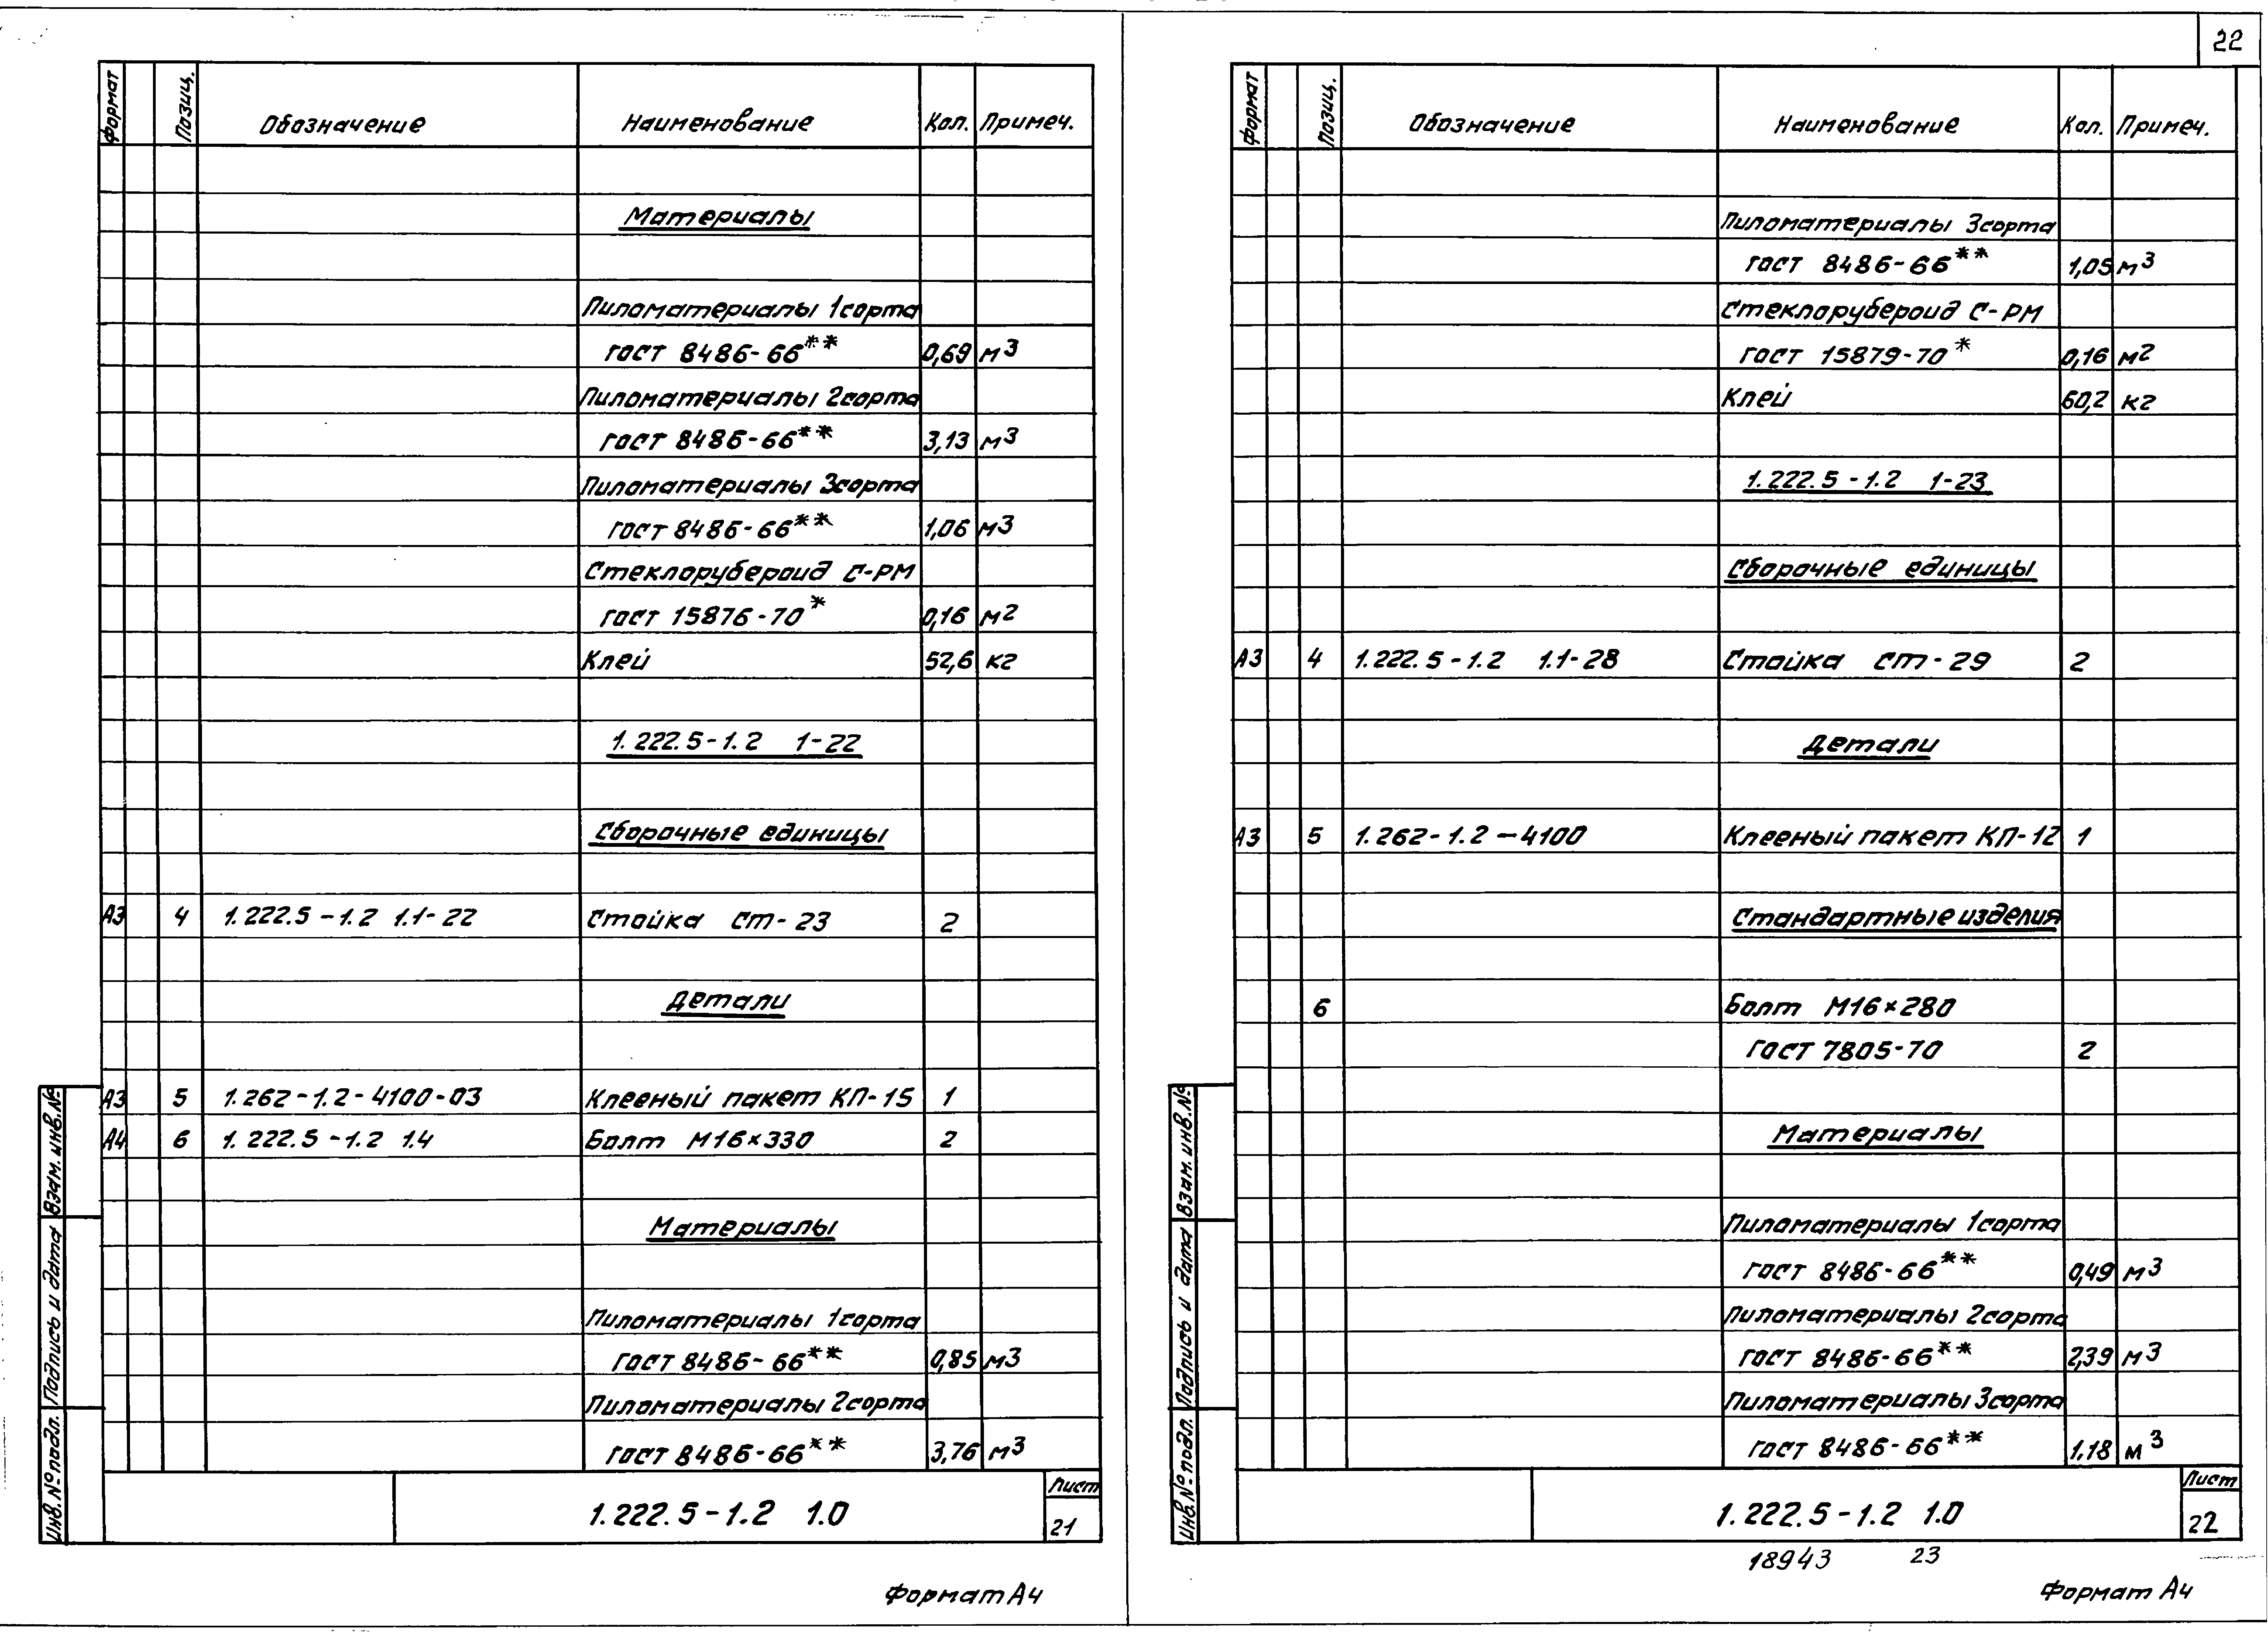 22
Формат Позиц. Обозначение Наименование Кол. Примеч.
Материалы
Пиломатериалы 1сорта
ГОСТ 8486-66** 0,69 м3
Пиломатериалы 2сорта
ГОСТ 8486-66** 3,13 м3
Пиломатериалы 3сорта
ГОСТ 8486-66** 1,06 м3
Стеклорубероид С-РМ
ГОСТ 15876-70* 0,16 м2
Клей 52,6 кг
1.222.5-1.2 1-22
Сборочные единицы
А3 4 1.222.5-1.2 1.1-22 Стойка Ст-23 2
Детали
А3 5 1.262-1.2-4100-03 Клееный пакет КП-15 1
А4 6 1.222.5-1.2 1.4 Болт М16×330 2
Материалы
Пиломатериалы 1сорта
ГОСТ 8486-66** 0,85 м3
Пиломатериалы 2сорта
ГОСТ 8486-66** 3,76 м3
Инв.№подл. Подпись и дата Взам.инв.№
1.222.5-1.2 1.0
Лист
21
Формат А4
Формат Позиц. Обозначение Наименование Кол. Примеч.
Пиломатериалы 3сорта
ГОСТ 8486-66** 1,05 м3
Стеклорубероид С-РМ
ГОСТ 15879-70* 0,16 м2
Клей 60,2 кг
1.222.5-1.2 1-23
Сборочные единицы
А3 4 1.222.5-1.2 1.1-28 Стойка Ст-29 2
Детали
А3 5 1.262-1.2-4100 Клееный пакет КП-12 1
Стандартные изделия
6 Болт М16×280
ГОСТ 7805-70 2
Материалы
Пиломатериалы 1сорта
ГОСТ 8486-66** 0,49 м3
Пиломатериалы 2сорта
ГОСТ 8486-66** 2,39 м3
Пиломатериалы 3сорта
ГОСТ 8486-66** 1,18 м3
Инв.№подл. Подпись и дата Взам.инв.№
1.222.5-1.2 1.0
Лист
22
18943 23
Формат А4